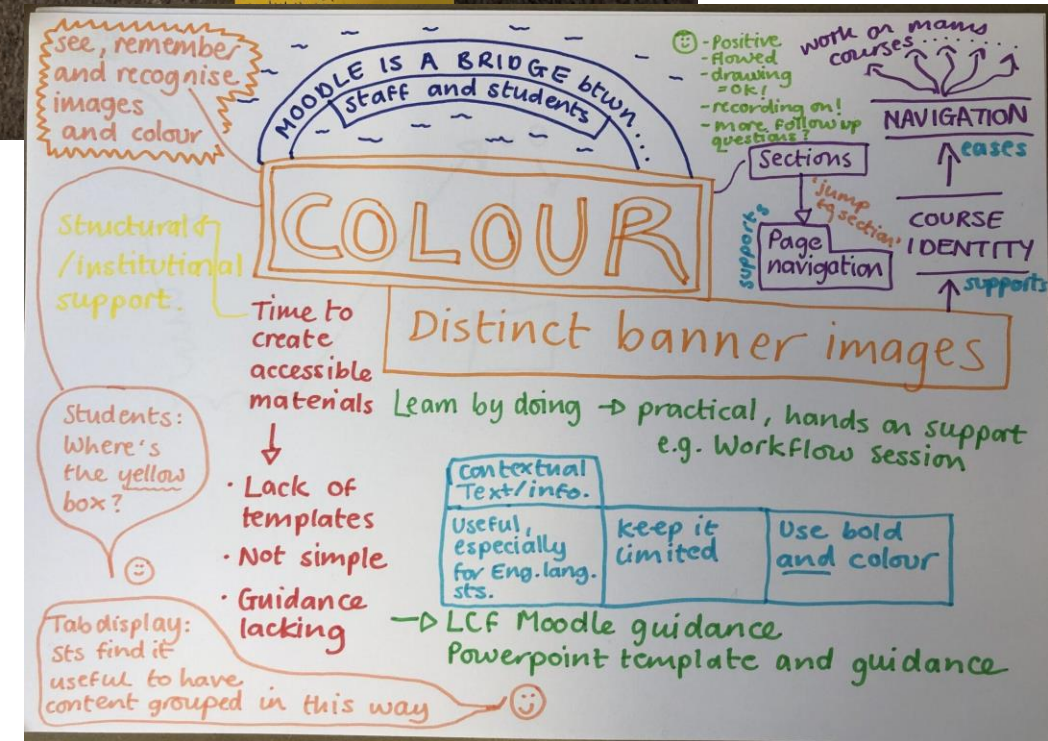 see, remember
and recognise
images
and colour
MOODLE IS A BRIDGE btwn...
staff and students
- Positive
- flowed
- drawing
= OK!
- recording on!
- more follow up
questions?
work on many
courses........
NAVIGATION
eases
COURSE
IDENTITY
supports
Sections
'jump
to section'
supports
Page
navigation
COLOUR
Distinct banner images
Structural &
/institutional
support.
Time to
create
accessible
materials
· Lack of
templates
· Not simple
· Guidance
lacking
Learn by doing → practical, hands on support
e.g. Workflow session
Students:
Where's
the yellow
box?
Contextual
Text/info.
Useful,
especially
for Eng. lang.
sts.
Keep it
limited
Use bold
and colour
→ LCF Moodle guidance
Powerpoint template and guidance
Tab display:
sts find it
useful to have
content grouped in this way